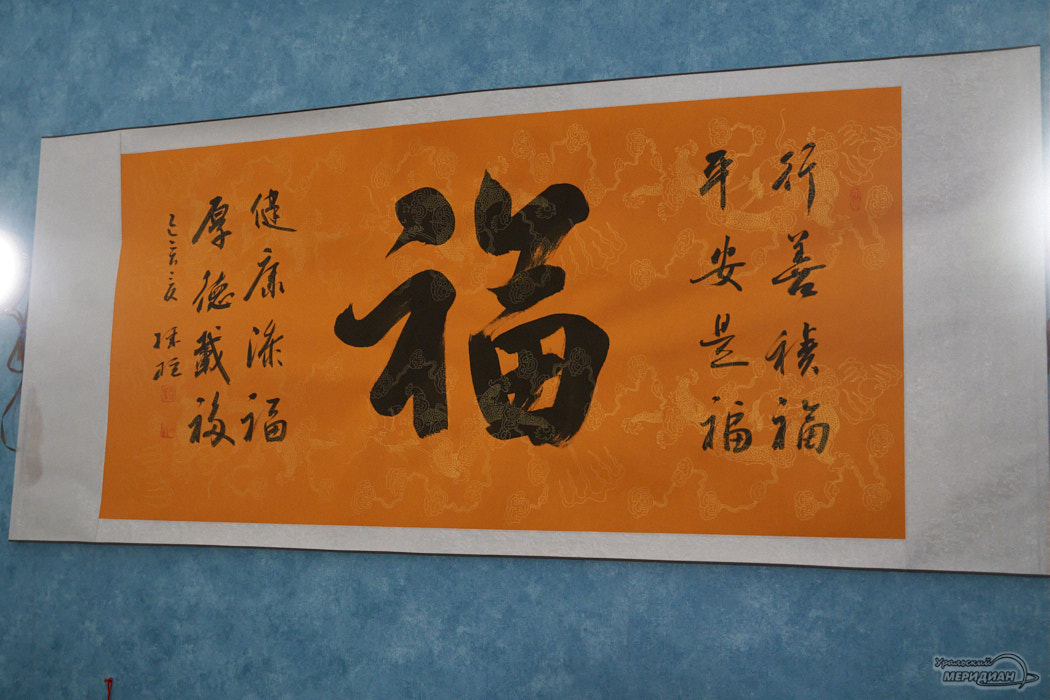 行善積福
平安是福
福
健康添福
厚德載福
己亥夏
Уральский
МЕРИДИАН